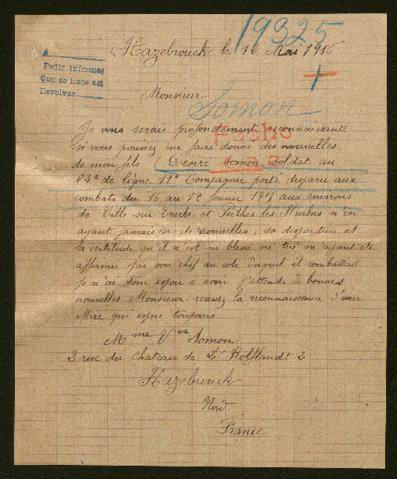 19325
Hazebrouck le 12 Mai 1916
Pedir informes
Que se hace así
Devolver
Monsieur
Somon
Je vous serais profondément reconnaissante
si vous pouviez me faire donné des nouvelles
de mon fils (Désiré Somon, Soldat au
de ligne 11e Compagnie porté disparu aux
combats du 16 au février 1915 aux environs
de Ville sur Tourbe et Perthes les Hurlus n en
ayant jamais eu de nouvelles, sa disparition et
la certitude qu'il n'est ni blessé ni tué m'ayant été
affirmée par son chef au coté duquel il combattait
j'ai de bons espoir à avoir j'attends de bonnes
nouvelles Monsieur recevez la reconnaissance d'une
Mère qui espère toujours.
Mme Vve Somon
3 rue du Chateau de 2
Hazebrouck
Nord
France